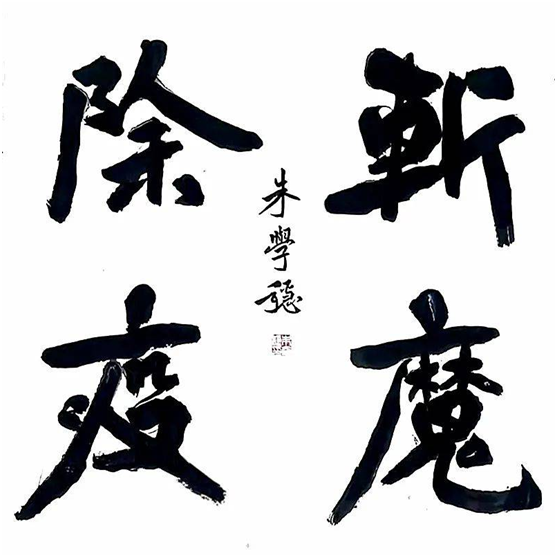 斬魔
除疫
朱學穩